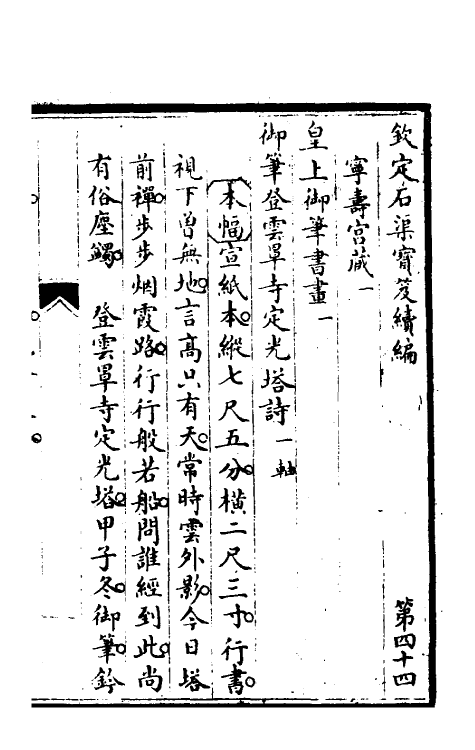 欽定石渠寶笈續編 第四十四
寧壽宮藏一
皇上御筆書畫一
御筆登雲罩寺定光塔詩一軸
本幅宣紙本縱七尺五分橫二尺三寸行書
視下曾無地言高只有天常時雲外影今日塔
前禪步步烟霞路行行般若船問誰經到此尚
有俗塵觸 登雲罩寺定光塔甲子冬御筆鈐